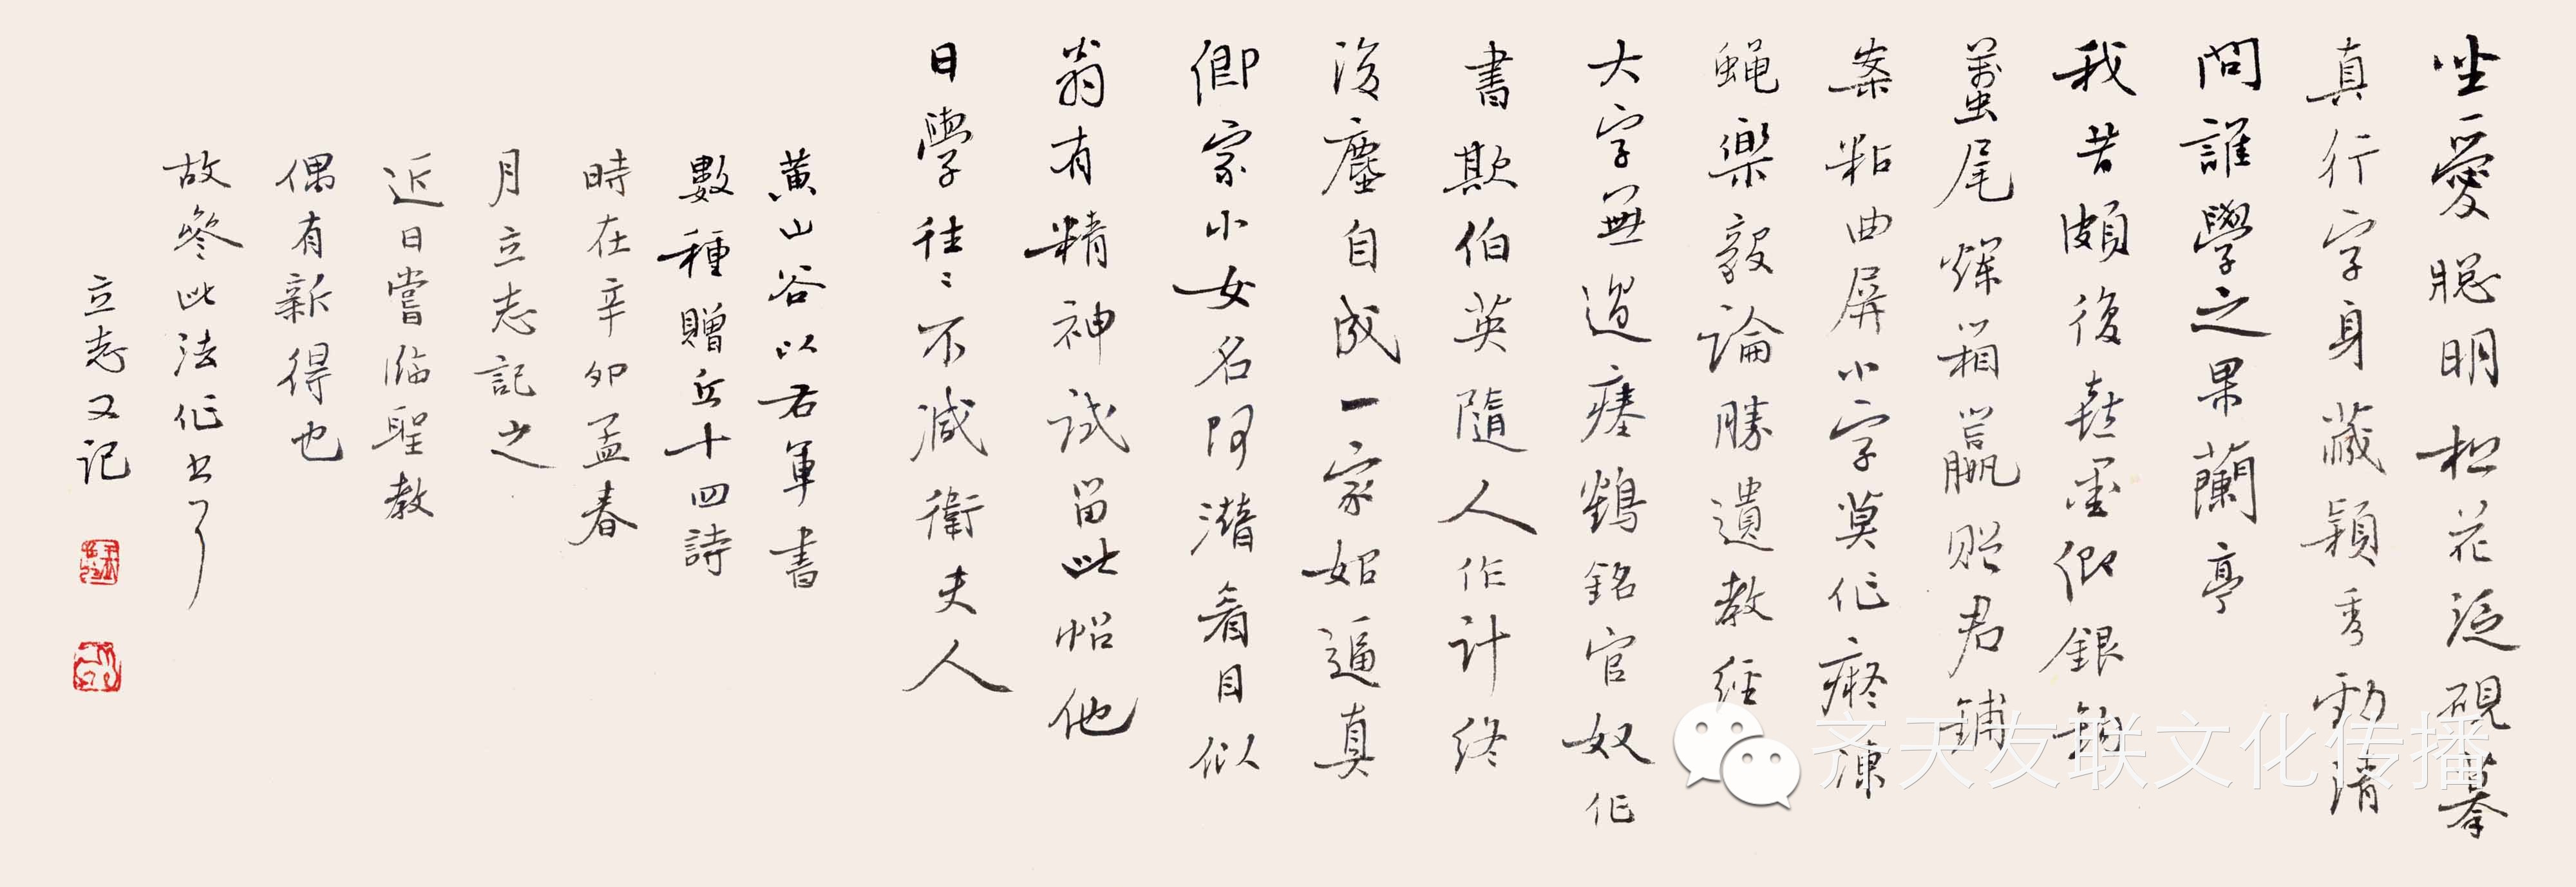 坐愛聰明松花泛硯摹
真行字身藏穎秀勁清
問誰學之果蘭亭
我昔頗復喜墨卿銀鉤
蠆尾爛箱籯贈君鋪
案粘曲屏小字莫作癡凍
蠅樂毅論勝遺教經
大字無過瘞鶴銘官奴作
書欺伯英隨人作計終
後塵自成一家始逼真
卿家小女名阿潛眉目似
翁有精神試留此帖他
日學往々不減衛夫人
黃山谷以右軍書
數種贈丘十四詩
時在辛卯孟春
月立志記之
近日嘗臨聖教
偶有新得也
故參此法作書耳
立志又記
齐天友联文化传播